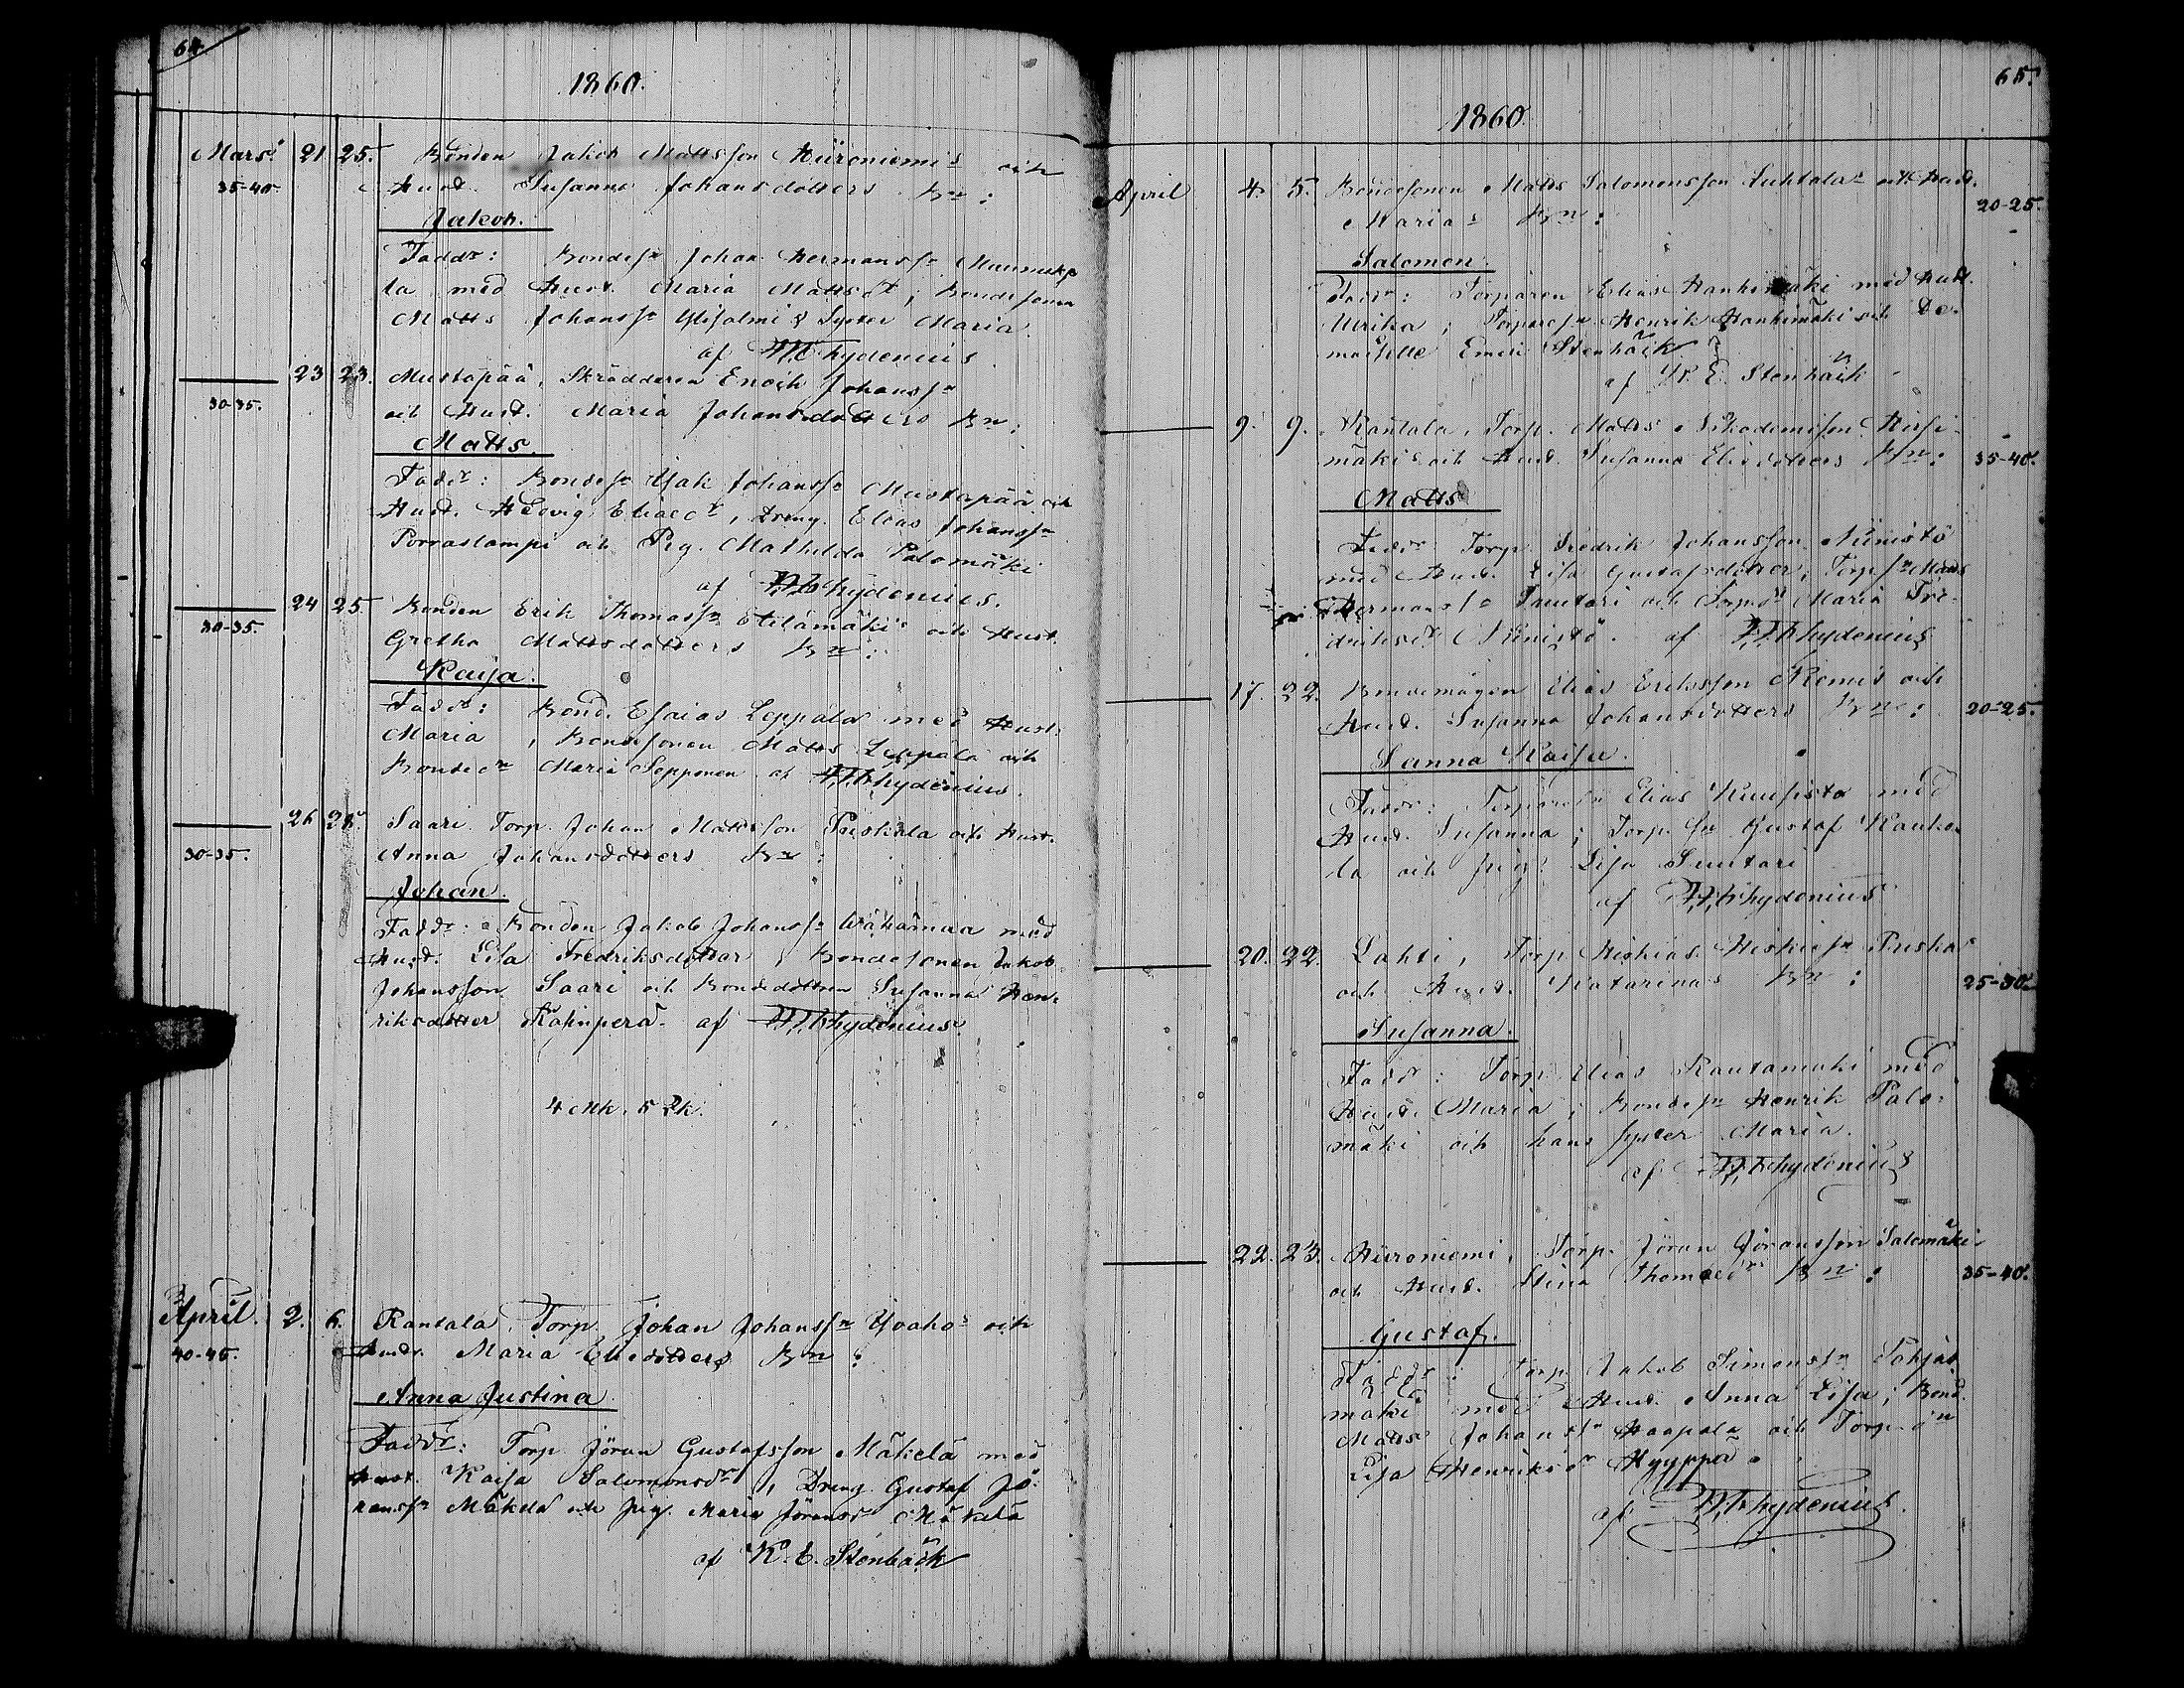 64.
1860.
Mars. 21 25. Bonden Jakob Mattsson Hiironiemis och
35-40. Hust. Susanna Johansdotters Bn:
Jakob.
Faddr: Bondesn Johan Hermanssn
la med Hust. Maria Mattsdr, Bondesonen
Matts Johanssn Ylisalmi & Syster Maria
af Thydenius
23 23. Mustapää, Skräddaren Enoch Johanssn
30-35. och Hust. Maria Johansdotters Bn:
Matts.
Faddr: Bondesn Isak Johanssn Mustapää och
Hust. Hedvig Eliaedr, Dreng. Elias Johanssn
Porraslampi och Pig. Mathilda Palomäki
af Thydenius.
24 25. Bonden Erik Thomassn Etelämäki och Hust.
30-35. Gretha Mattsdotters Bn:
Kaisa.
Faddr: Bond. Esaias Leppälä med Hust.
Maria, Bondesonen Matts Leppälä och
Bondedn Maria Sepponen af Thydenius.
26 28. Saari. Torp. Johan Mattsson Piiskala och Hust.
30-35. Anna Johansdotters Bn:
Johan.
Faddr: Bonden Jakob Johanssn Wähämaa med
Hust. Lisa Fredriksdotter, Bondesonen Jakob
Johansson Saari och Bondedottren Susanna Hen-
riksdotter Kahnperä. af Thydenius.
4 Mk. 5 Qk.
April. 2. 6. Rantala, Torp. Johan Johanssn Yvahos och
40-45. Hust. Maria Eliedotters Bn:
Anna Justina
Faddr: Torp. Jöran Gustafsson Mäkelä med
Hust. Kaisa Salomonsdr, Dreng Gustaf Jö-
ranssn Mäkelä och Pig. Maria Jöransdr Mäkelä
af K. E. Stenbäck
65.
1860.
April 4. 5. Bondesonen Matts Salomonsson Luhtalas och Hust.
Marias Bn: 20-25.
Salomon.
Faddr: Torparen Elias Hankimäki med Hust.
Ulrika; Torparesn Henrik Hankimäki och De-
moiselle Emeli Stenbäck
af K. E. Stenbäck
9. 9. Rantala, Torp. Matts Nikodemisson Hirsi-
mäkis och Hust. Susanna Eliedotters Bn: 35-40.
Matts
Faddr: Torp. Fredrik Johansson Niinistö
med Hust. Lisa Gustafsdotter, Torpsn Matts
Hermanssn Suutari och Torpdr Maria Fre-
driksdr Niinistö. af Thydenius
17. 22. Bondemågen Elias Eriksson Niemis och
Hust. Susanna Johansdotters Bn: 20-25.
Sanna Kaisa.
Faddr: Torparesn Elias Kuusisto med
Hust. Susanna; Torp. sn Gustaf Kauko-
la och Pig. Lisa Suutari
af Thydenius
20. 22. Lahti, Torp. Hiskias Hiskiesn Piiskas
och Hust. Katarinas Bn: 25-30.
Susanna.
Faddr: Torp. Elias Rautamäki med
Hust. Maria; Bondesn Henrik Palo-
mäki och hans syster Maria.
af Thydenius
22. 23. Hiironiemi, Torp. Jöran Jöransson Salomäki
och Hust. Stina Thomaedrs Bn: 35-40.
Gustaf.
Faddr: Torp. Jakob Simonssn Pohjas-
mäki med Hust. Anna Lisa; Bond.
Matts Johanssn Haapala och Torp. dn
Lisa Henriksdr Hyyppä.
af Thydenius.